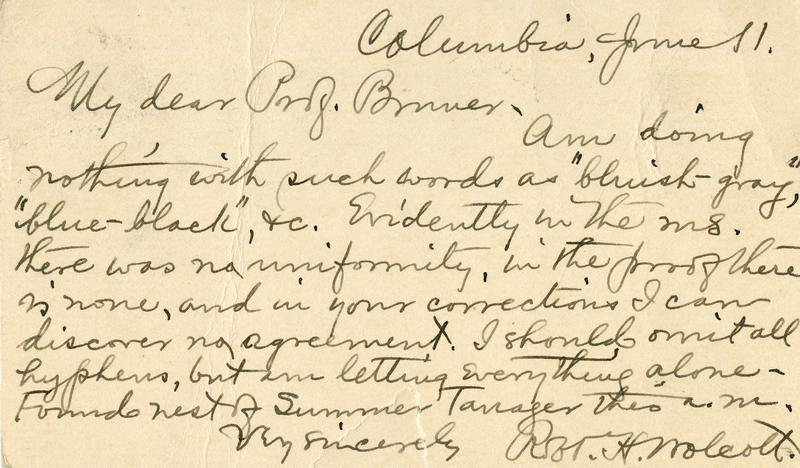 Columbia, June 11.
My dear Prof. Bruner,
Am doing
nothing with such words as "bluish-gray",
"blue-black", &c. Evidently in the ms.
there was no uniformity, in the proof there
is none, and in your corrections I can
discover no agreement. I should omit all
hyphens, but am letting everything alone-
Found nest of Summer Tanager this a.m.
Very sincerely Robt. H. Wolcott.